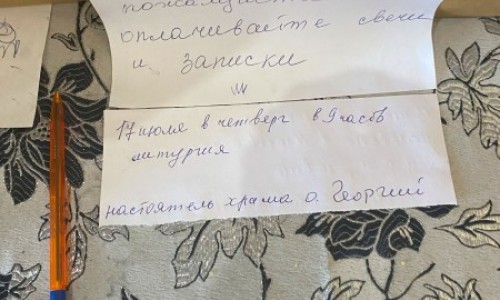 оплачивайте свечи
и записки
17 июля в четверг в 9 часов
литургия
настоятель храма о. Георгий